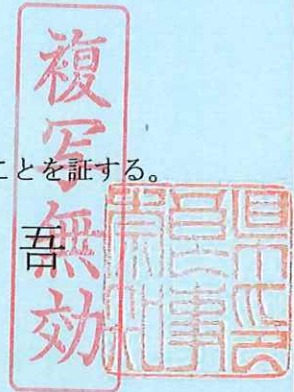 複写無効
ことを証する。
吾